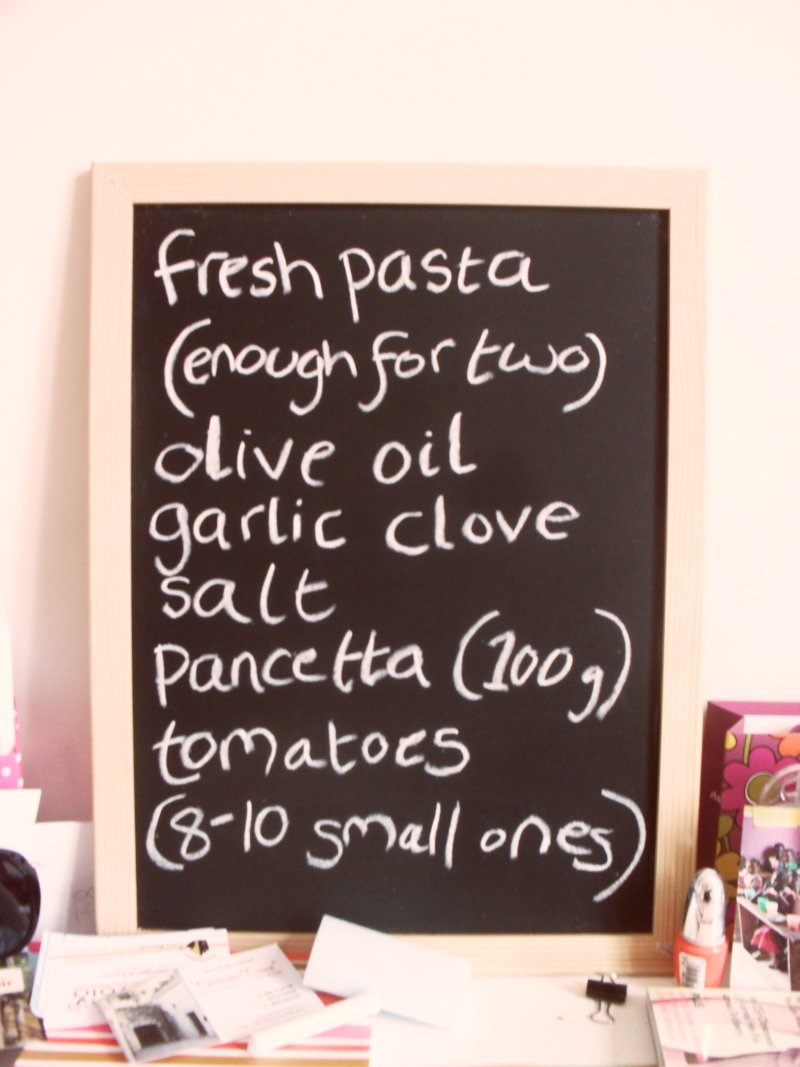 fresh pasta
(enough for two)
olive oil
garlic clove
salt
pancetta (100g)
tomatoes
(8-10 small ones)